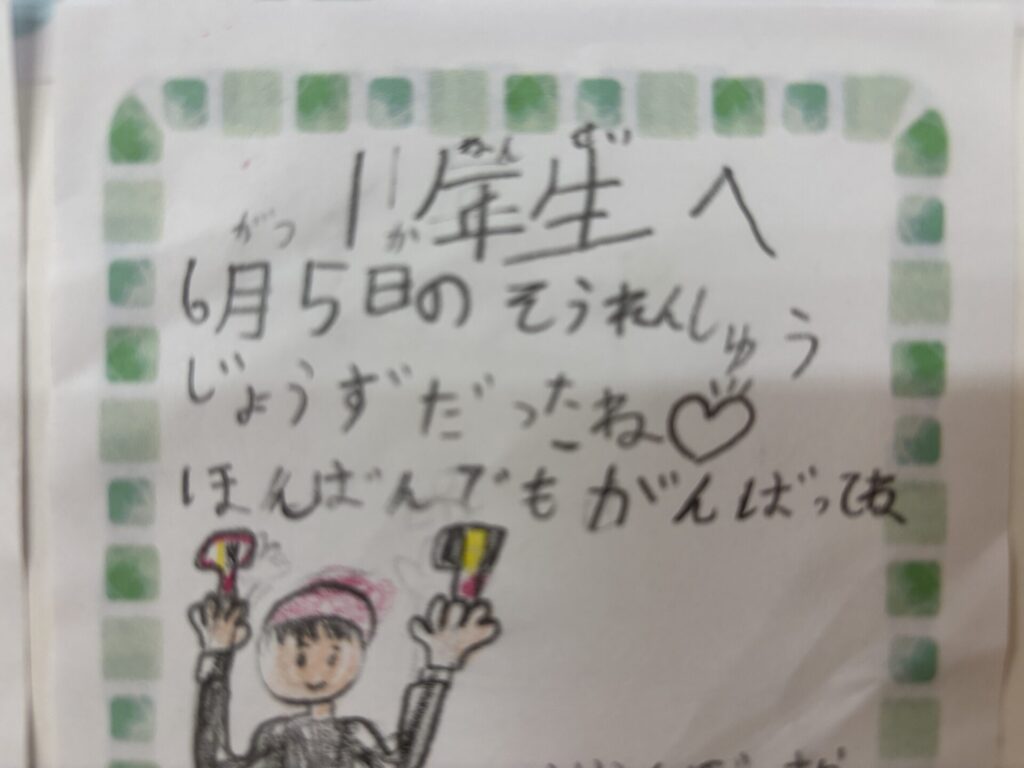 1年生へ
ねん せい
がつ か
6月5日のそうれんしゅう
じょうずだったね♡
ほんばんでもがんばってね